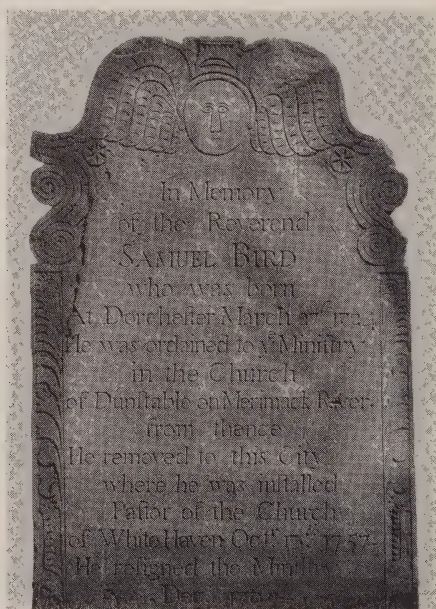 In Memory
of the Reverend
SAMUEL BIRD
who was born
At Dorcheſter March 27th 172
He was ordained to ye Miniſtry
in the Church
of Dunſtable on Merimack River.
from thence
He removed to this City
where he was inſtalled
Paſtor of the Church
of White Haven Octr. 13th. 1757
He reſigned the Miniſtry